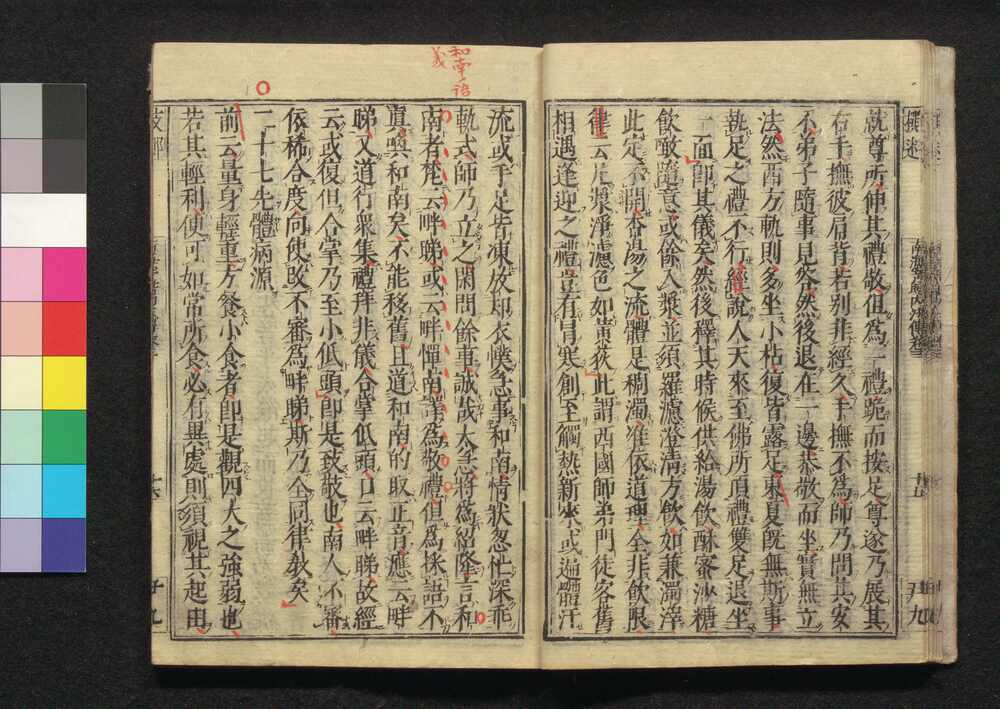 就尊所伸其禮敬但為一禮跪而按足尊遂乃展其
右手撫彼肩背若別非經久手撫不為師乃問其安
不弟子隨事見答然後退在一邊恭敬而坐實無立
法然西方軌則多坐小枯復皆露足東夏既無斯事
執足之禮不行經說人天來至佛所頂禮雙足退坐
一面即其儀矣然後釋其時候供給湯飲酥蜜沙糖
飲噉隨意或餘八漿並須羅濾澄清方飲如兼濁滓
此定不開杏湯之流體是稠濁准依道理全非飲限
律云凡漿淨濾色如黃荻此謂西國師弟門徒客舊
相遇逢迎之禮豈有冒寒創至觸熱新來或遍體汗
和南語
義
流或手足皆凍放却衣幞急事和南情狀怱忙深乖
軌式師乃立之閑問餘事誠哉太急將為紹隆言和
南者梵云畔睇或云畔憚南譯為敬禮但為採語不
真喚和南矣不能移舊且道和南的取正音應云畔
睇又道行眾集禮拜非儀合掌低頭口云畔睇故經
云或復但合掌乃至小低頭即是致敬也南人不審
依稀合度向使改不審為畔睇斯乃全同律教矣
二十七先體病源
前云量身輕重方餐小食者即是觀四大之強弱也
若其輕利便可如常所食必有異處則須視其起由